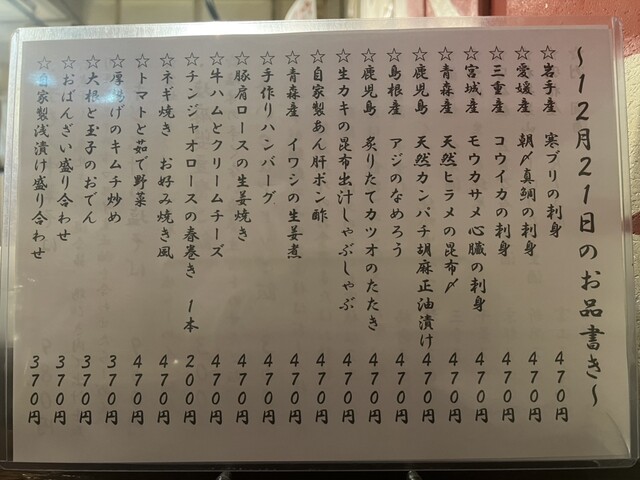 ～12月21日のお品書き～
☆岩手産 寒ブリの刺身 470円
☆愛媛産 朝〆真鯛の刺身 470円
☆三重産 コウイカの刺身 470円
☆宮城産 モウカサメ心臓の刺身 470円
☆青森産 天然ヒラメの昆布〆 470円
☆鹿児島 天然カンパチ胡麻正油漬け 470円
☆島根産 アジのなめろう 470円
☆鹿児島 炙りたてカツオのたたき 470円
☆生カキの昆布出汁しゃぶしゃぶ 470円
☆自家製あん肝ポン酢 470円
☆青森産 イワシの生姜煮 470円
☆手作りハンバーグ 470円
☆豚肩ロースの生姜焼き 470円
☆牛ハムとクリームチーズ 470円
☆チンジャオロースの春巻き 1本 200円
☆ネギ焼き お好み焼き風 470円
☆トマトと茹で野菜 470円
☆厚揚げのキムチ炒め 370円
☆大根と玉子のおでん 370円
☆おばんざい盛り合わせ 370円
☆自家製浅漬け盛り合わせ 370円